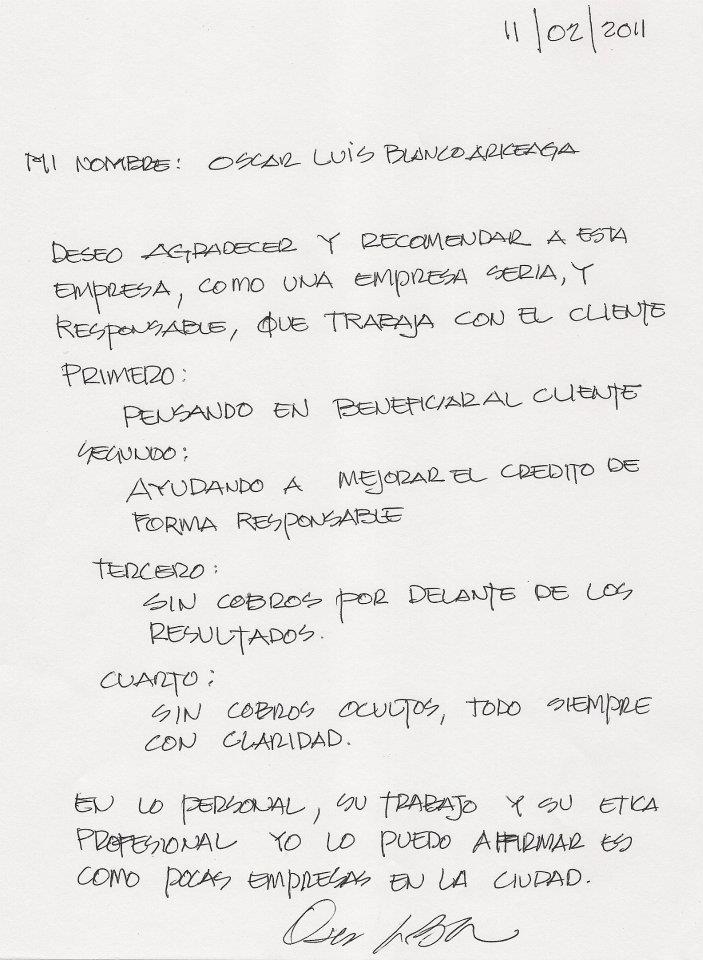 11/02/2011
MI NOMBRE: OSCAR LUIS BLANCO ARICEAGA
DESEO AGRADECER Y RECOMENDAR A ESTA
EMPRESA, COMO UNA EMPRESA SERIA, Y
RESPONSABLE, QUE TRABAJA CON EL CLIENTE
PRIMERO:
PENSANDO EN BENEFICIAR AL CLIENTE
SEGUNDO:
AYUDANDO A MEJORAR EL CREDITO DE
FORMA RESPONSABLE
TERCERO:
SIN COBROS POR DELANTE DE LOS
RESULTADOS.
CUARTO:
SIN COBROS OCULTOS, TODO SIEMPRE
CON CLARIDAD.
EN LO PERSONAL, SU TRABAJO Y SU ETICA
PROFESIONAL YO LO PUEDO AFFIRMAR ES
COMO POCAS EMPRESAS EN LA CIUDAD.